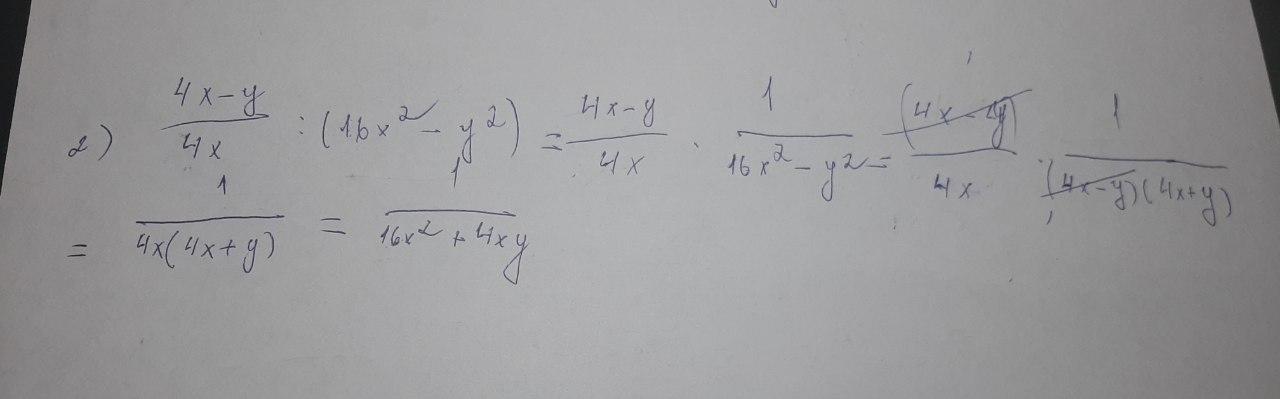 2) (4x-y)/(4x) : (16x² - y²) = (4x-y)/(4x) · 1/(16x² - y²) = (4x-y)/(4x) · 1/((4x-y)(4x+y))
= 1/(4x(4x+y)) = 1/(16x² + 4xy)